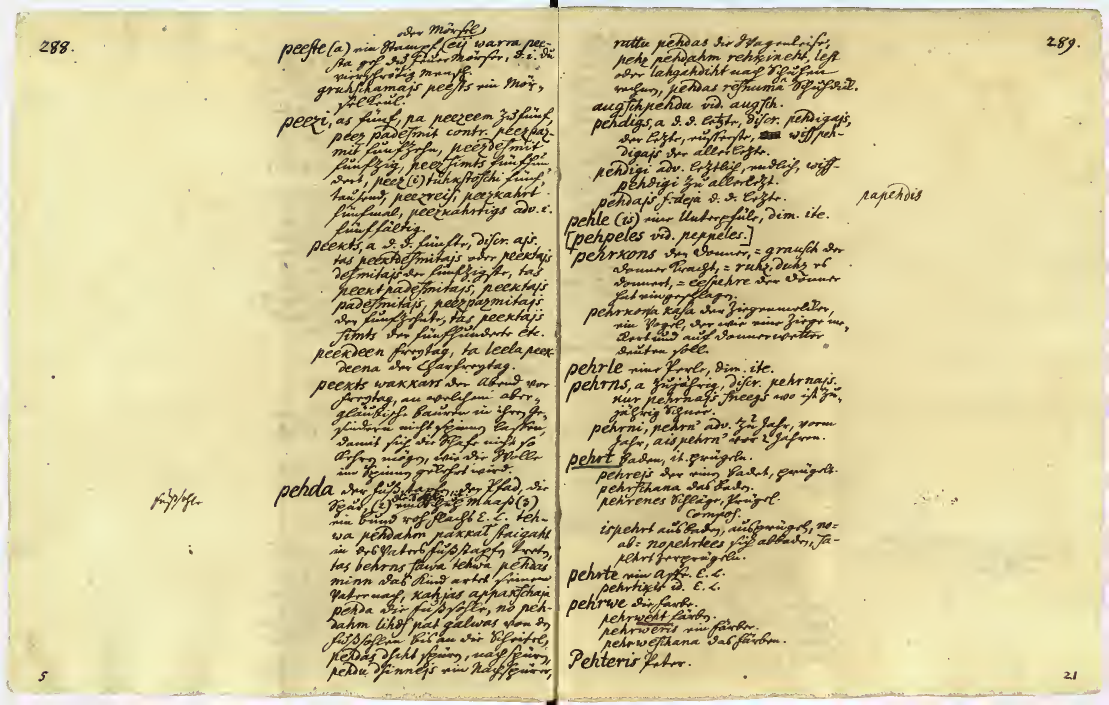 288.
oder Mörsel,
peeste (a) ein Stampf (eij warra pee-
sta
gruhschamajs peests ein Mör-
sel Keul.
peezi, as fünf, pa peezeem zu fünf,
peez padesmit contr. peezpaz-
mit fünfzehn, peezdesmit
fünfzig, peez simts fünfhun-
dert, peez (i) tuhkstoschi fünf
tausend, peezreis, peezkahrt
fünfmal, peezkahrtigs adv. i.
fünffältig.
peekts, a d. d. fünfte, discr. ajs.
tas peektdesmitajs oder peektajs
desmitajs der fünfzigste, tas
peekt padesmitajs, peektajs
padesmitajs, peezpazmitajs
der fünfzehnte, tas peektajs
simts der fünfhunderte etc.
peekdeen freytag, ta leela peek-
deena der Charfreytag.
peekts wakkars der Abend vor
freytag, an welchem aber-
gläubische Bauren in ihren Ge-
sindern nicht spinnen lassen,
damit sich die Schafe nicht so
mögen, wie die Wolle
im Spinnen gedrehet wird.
fußsohle
pehda der fuß, der Pfad, die
Spur, (2) Maaß (3)
ein bund roh flachs E. L. teh-
wa pehdahm pakkal staigaht
in des Vaters fußstapfen treten,
tas behrns sawa tehwa pehdas
minn das Kind artet seinem
Vater nach, kahjas appakschaja
pehda die fußsohle, no peh-
dahm lihds pat galwas von den
fußsohlen bis an die Scheitel,
pehdas dsiht spüren, nachspüren,
pehdu dsinnejs ein Nachspürer,
5
289.
rattu pehdas die Wagenleise,
pehz pehdahm rehkineht, lest
oder lahgahdiht nach Schuhen
rechnen, pehdas resnumä Schuh dick.
augschpehdu vid. augsch.
pehdigs, a d. d. letzte, discr. pehdigajs,
der letzte, eusserste, wisspeh-
digajs der allerletzte.
pehdigi adv. letztlich, endlich, wiss-
pehdigi zu allerletzt.
pehdajs f. deja d. d. letzte.
papehdis
pehle (is) eine Unterpfüle, dim. ite.
[pehpeles vid. peppeles.]
pehrkons der Donner, = grausch der
Donner kracht, = ruhz, duhz es
donnert, = eespehre der Donner
hat eingeschlagen.
pehrkona kasa der Ziegenmelker,
ein Vogel, der wie eine Ziege me-
kert und auf Donnerwetter
deuten soll.
pehrle eine Perle, dim. ite.
pehrns, a zujährig, discr. pehrnajs.
nur pehrnajs sneegs wo ist zu-
jährig Schnee.
pehrni, pehrn' adv. zu Jahr, vorm
Jahr, aispehrn' vor 2 Jahren.
pehrt baden, it. prügeln.
pehrejs der einen badet, prügelt.
pehrschana das Baden.
pehrenes Schläge, Prügel.
Compos.
ispehrt ausbaden, ausprügeln, no=
ab= nopehrtees sich abbaden, sa-
pehrt zerprügeln.
pehrte ein Affe. E. L.
pehrtikis id. E. L.
pehrwe die farbe.
pehrweht färben.
pehrweris ein färber.
pehrweschana das färben.
Pehteris Peter.
21